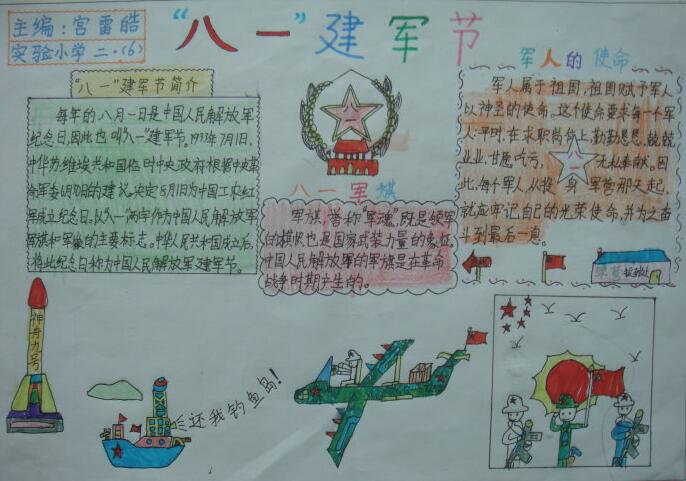 主编：宫雷皓
实验小学二·(6)
“八一”建军节
“八一”建军节简介
每年的八月一日是中国人民解放军
纪念日，因此也叫“八一”建军节。1933年7月1日，
中华苏维埃共和国临时中央政府根据中央革
命军委6月30日的建议，决定8月1日为中国工农红
军成立纪念日。以“八一”两字作为中国人民解放军
军旗和军徽的主要标志。中华人民共和国成立后，
将此纪念日称为中国人民解放军建军节。
八一
八一军旗
军旗，誉称“军魂”，既是领军
的模帜，也是国家武装力量的象征，
中国人民解放军的军旗是在革命
战争时期产生的。
军人的使命
军人属于祖国，祖国赋予军人
以神圣的使命。这个使命要求每个军
人：平时，在求职岗位上勤勤恳恳，兢兢
业业，甘愿吃亏，无私奉献。因
八一
此，每个军人从投身军营那天起，
就应牢记自己的光荣使命，并为之奋
斗到最后一息。
神舟九号
还我钓鱼岛！